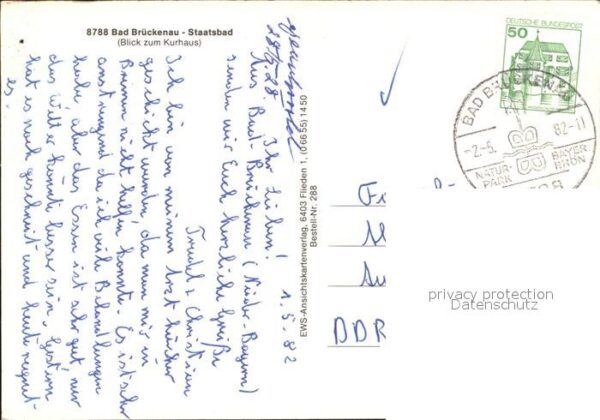 8788 Bad Brückenau - Staatsbad
(Blick zum Kurhaus)
1.5.82
Ihr Lieben!
Aus Bad-Brückenau (Nieder-Bayern)
senden wir Euch herzliche Grüße
Friedel + Christian
Ich bin von meinem Arzt hierher
geschickt worden, da man mir in
Brimm nicht helfen konnte. Es ist sehr
anstrengend da ich viel Behandlungen
habe aber das Essen ist sehr gut, nur
das Wetter könnte besser sein. Gestern
hat es noch geschneit und heute regnet
es.
EWS-Ansichtskartenverlag, 6403 Flieden 1, (06655) 1450
Bestell-Nr. 288
DEUTSCHE BUNDESPOST
50
BAD BRÜCKENAU
-2.-5. 82-11
NATUR-
PARK
BAYER
RHÖN
DDR
privacy protection
Datenschutz